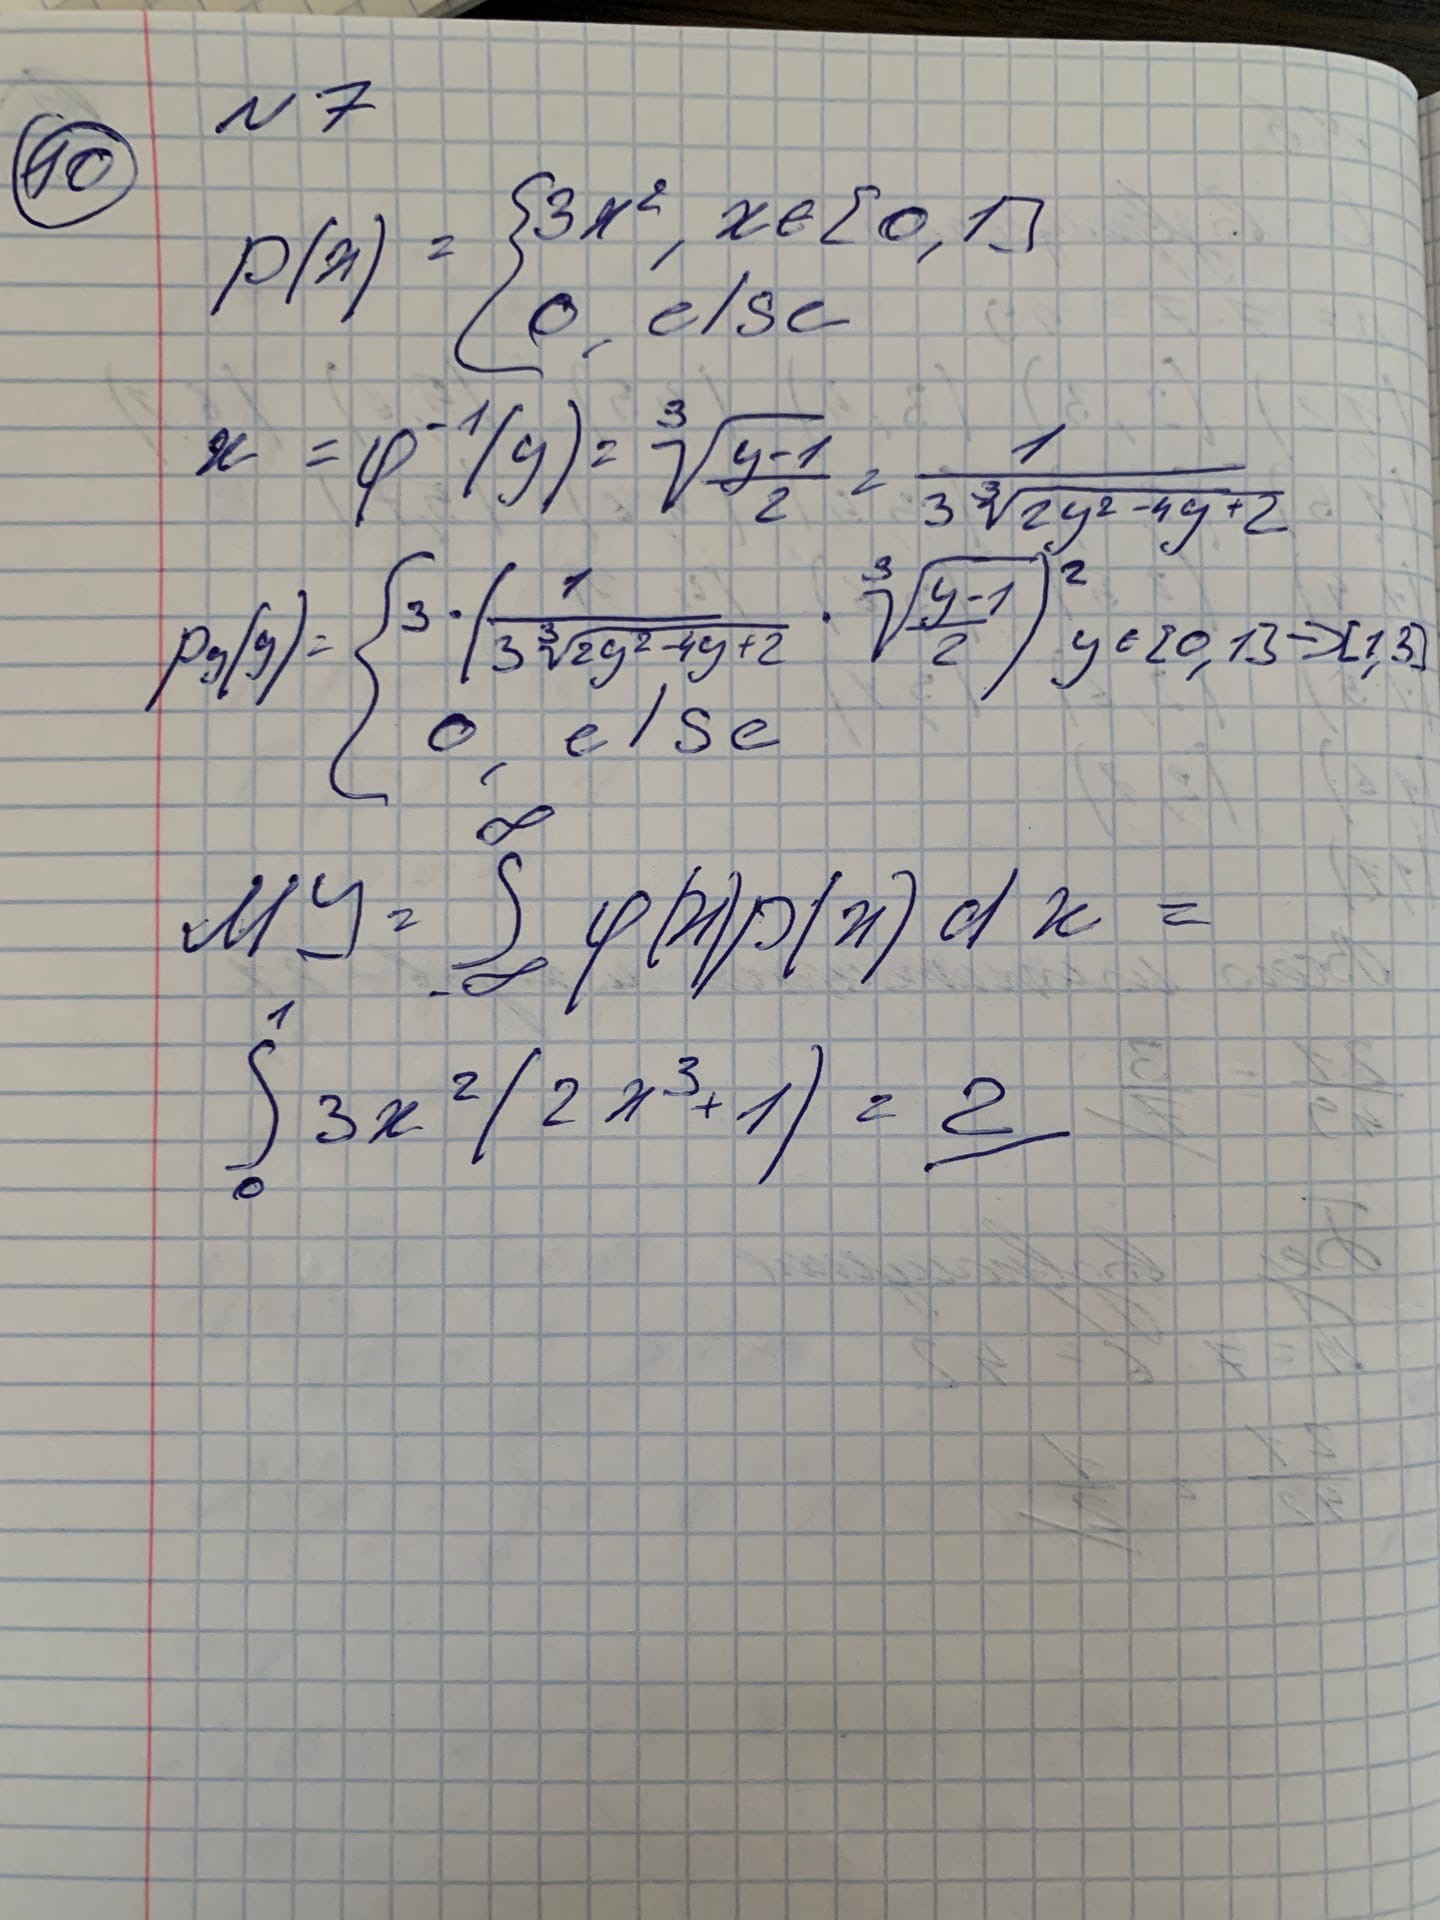 №7
10
p(x) = {3x², x∈[0,1]
0, else
x = φ⁻¹(y) = ∛((y-1)/2) = 1/(3∛(2y²-4y+2))
p_y(y) = {3·(1/(3∛(2y²-4y+2)) · ∛((y-1)/2))² y∈[0,1]→[1,3]
0, else
MY = ∫_{-∞}^{∞} φ(x)p(x)dx =
∫_0^1 3x²(2x³+1) = 2